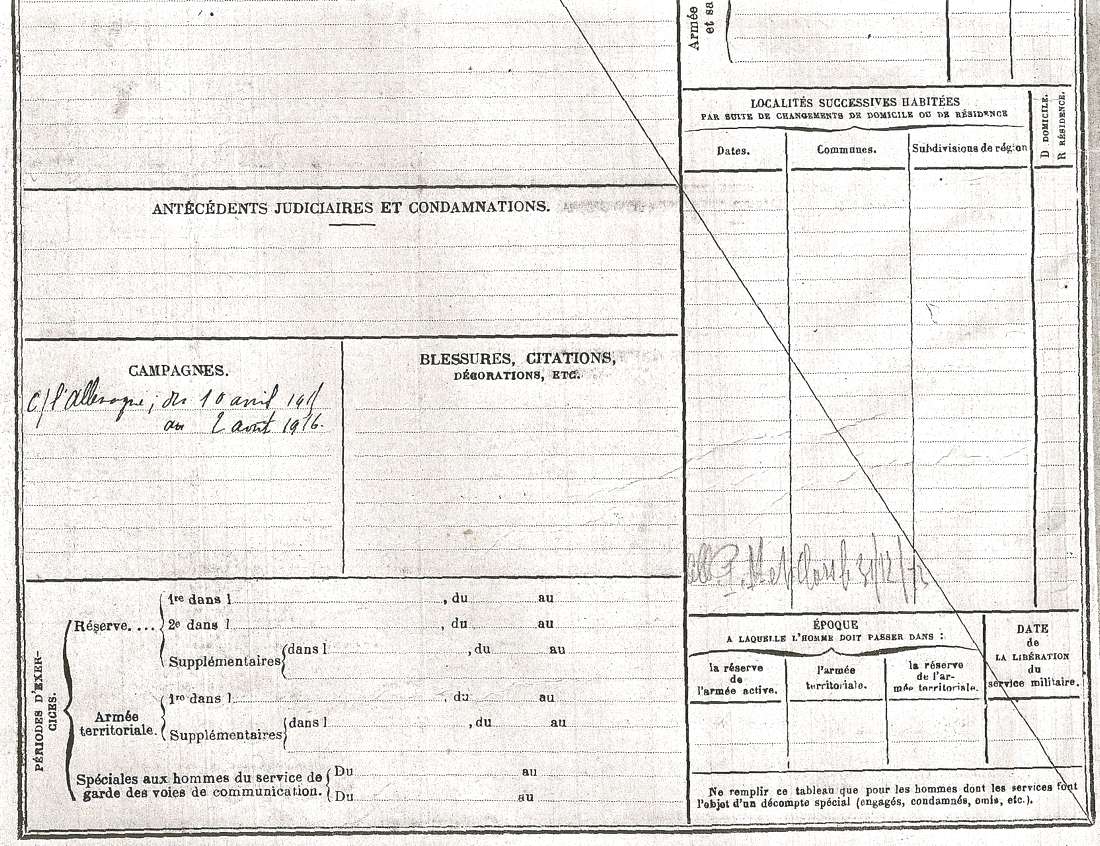 Armée
et sa
LOCALITÉS SUCCESSIVES HABITÉES
PAR SUITE DE CHANGEMENTS DE DOMICILE OU DE RÉSIDENCE
D DOMICILE.
R RÉSIDENCE.
Dates.
Communes.
Subdivisions de région
ANTÉCÉDENTS JUDICIAIRES ET CONDAMNATIONS.
CAMPAGNES.
c/ l'Allemagne, du 10 avril
au 2 août 1916.
BLESSURES, CITATIONS,
DÉCORATIONS, ETC.
31/12/72
PÉRIODES D'EXER-
CICES.
Réserve....
1re dans l , du au
2e dans l , du au
Supplémentaires
dans l , du au
Armée
territoriale.
1re dans l , du au
Supplémentaires
dans l , du au
Spéciales aux hommes du service de
garde des voies de communication.
Du au
Du au
ÉPOQUE
A LAQUELLE L'HOMME DOIT PASSER DANS :
la réserve
de
l'armée active.
l'armée
territoriale.
la réserve
de l'ar-
mée territoriale.
DATE
de
LA LIBÉRATION
du
service militaire.
Ne remplir ce tableau que pour les hommes dont les services font
l'objet d'un décompte spécial (engagés, condamnés, omis, etc.).